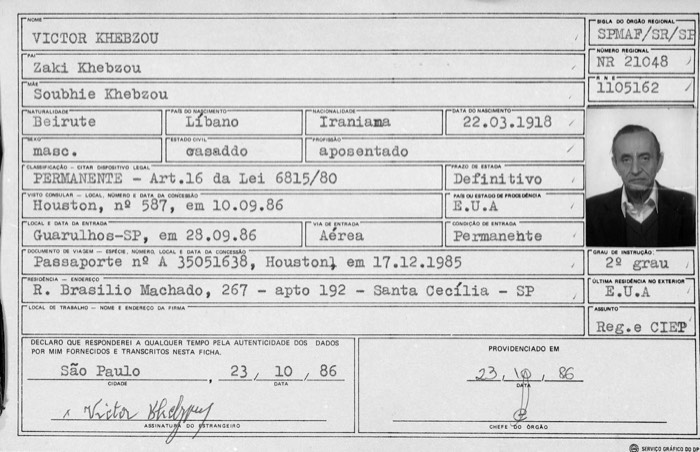 NOME
VICTOR KHEBZOU
SIGLA DO ÓRGÃO REGIONAL
SPMAF/SR/SP
PAI
Zaki Khebzou
NÚMERO REGIONAL
NR 21048
MÃE
Soubhie Khebzou
R N E
1105162
NATURALIDADE
Beirute
PAÍS DO NASCIMENTO
Líbano
NACIONALIDADE
Iraniana
DATA DO NASCIMENTO
22.03.1918
SEXO
masc.
ESTADO CIVIL
casaddo
PROFISSÃO
aposentado
CLASSIFICAÇÃO - CITAR DISPOSITIVO LEGAL
PERMANENTE - Art.16 da Lei 6815/80
PRAZO DE ESTADA
Definitivo
VISTO CONSULAR - LOCAL, NÚMERO E DATA DA CONCESSÃO
Houston, nº 587, em 10.09.86
PAÍS OU ESTADO DE PROCEDÊNCIA
E.U.A
LOCAL E DATA DA ENTRADA
Guarulhos-SP, em 28.09.86
VIA DE ENTRADA
Aérea
CONDIÇÃO DE ENTRADA
Permanente
DOCUMENTO DE VIAGEM - ESPÉCIE, NÚMERO, LOCAL E DATA DA CONCESSÃO
Passaporte nº A 35051638, Houston, em 17.12.1985
GRAU DE INSTRUÇÃO
2º grau
RESIDÊNCIA - ENDEREÇO
R. Brasilio Machado, 267 - apto 192 - Santa Cecília - SP
ÚLTIMA RESIDÊNCIA NO EXTERIOR
E.U.A
LOCAL DE TRABALHO - NOME E ENDEREÇO DA FIRMA
ASSUNTO
Reg.e CIEP
DECLARO QUE RESPONDEREI A QUALQUER TEMPO PELA AUTENTICIDADE DOS DADOS
POR MIM FORNECIDOS E TRANSCRITOS NESTA FICHA.
São Paulo, 23 / 10 / 86
CIDADE DATA
Victor Khebzou
ASSINATURA DO ESTRANGEIRO
PROVIDENCIADO EM
23, 10, 86
DATA
CHEFE DO ÓRGÃO
SERVIÇO GRÁFICO DO DP